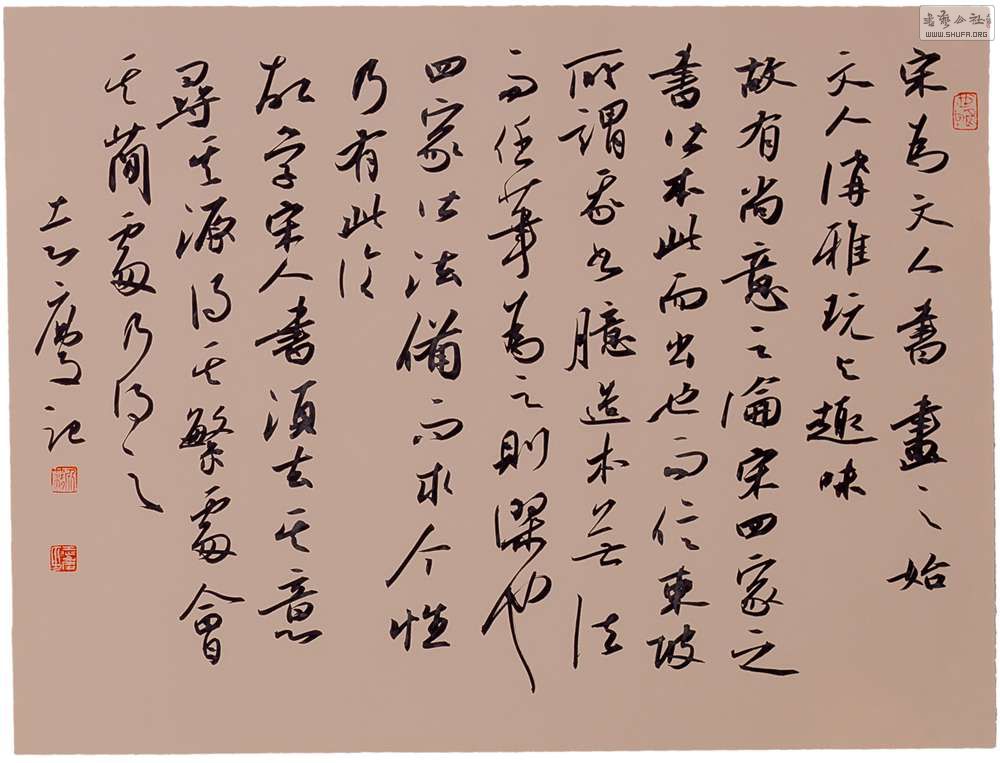 宋為文人書畫之始
文人講雅玩之趣味
故有尚意之論宋四家之
書皆本此而出也而信東坡
所謂我書臆造本无法
而任筆為之則謬也
四家皆法備而求个性
乃有此
故学宋人書須去其意
尋其源得其繁處會
其簡處乃得之
鷹記
書藝公社
WWW.SHUFA.ORG